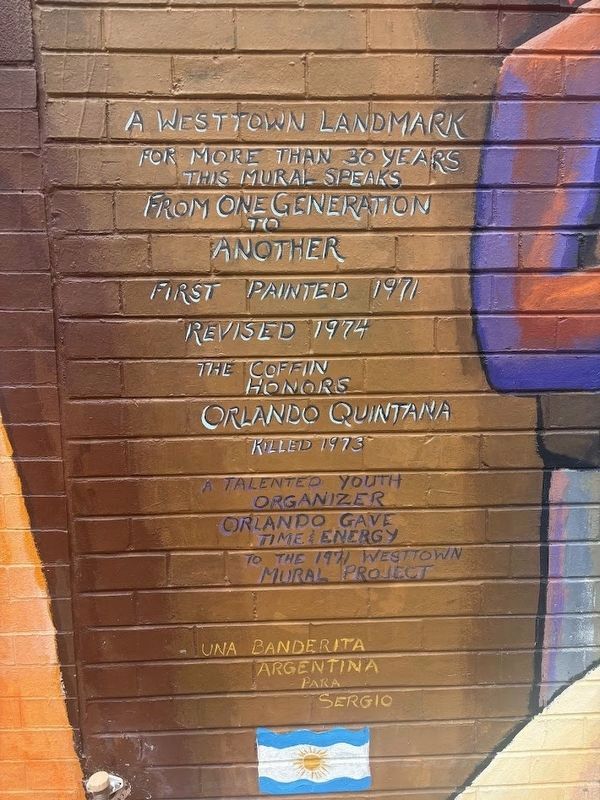 A WESTTOWN LANDMARK
FOR MORE THAN 30 YEARS
THIS MURAL SPEAKS
FROM ONE GENERATION
TO
ANOTHER
FIRST PAINTED 1971
REVISED 1974
THE COFFIN
HONORS
ORLANDO QUINTANA
KILLED 1973
A TALENTED YOUTH
ORGANIZER
ORLANDO GAVE
TIME & ENERGY
TO THE 1971 WESTTOWN
MURAL PROJECT
UNA BANDERITA
ARGENTINA
PARA
SERGIO